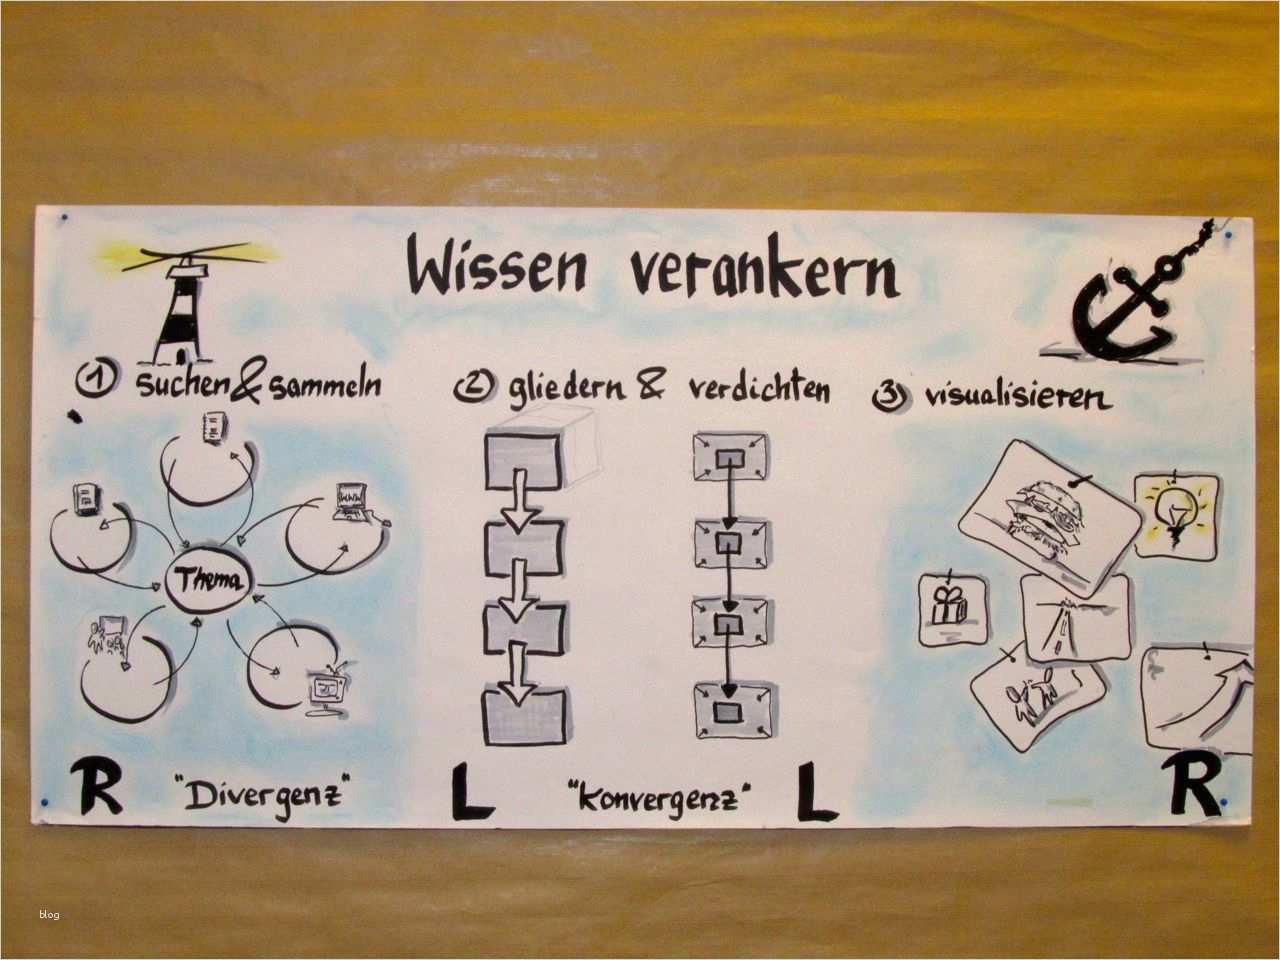 Wissen verankern
1 suchen & sammeln
2 gliedern & verdichten
3 visualisieren
www
Thema
R "Divergenz" L "Konvergenz" L R
blog